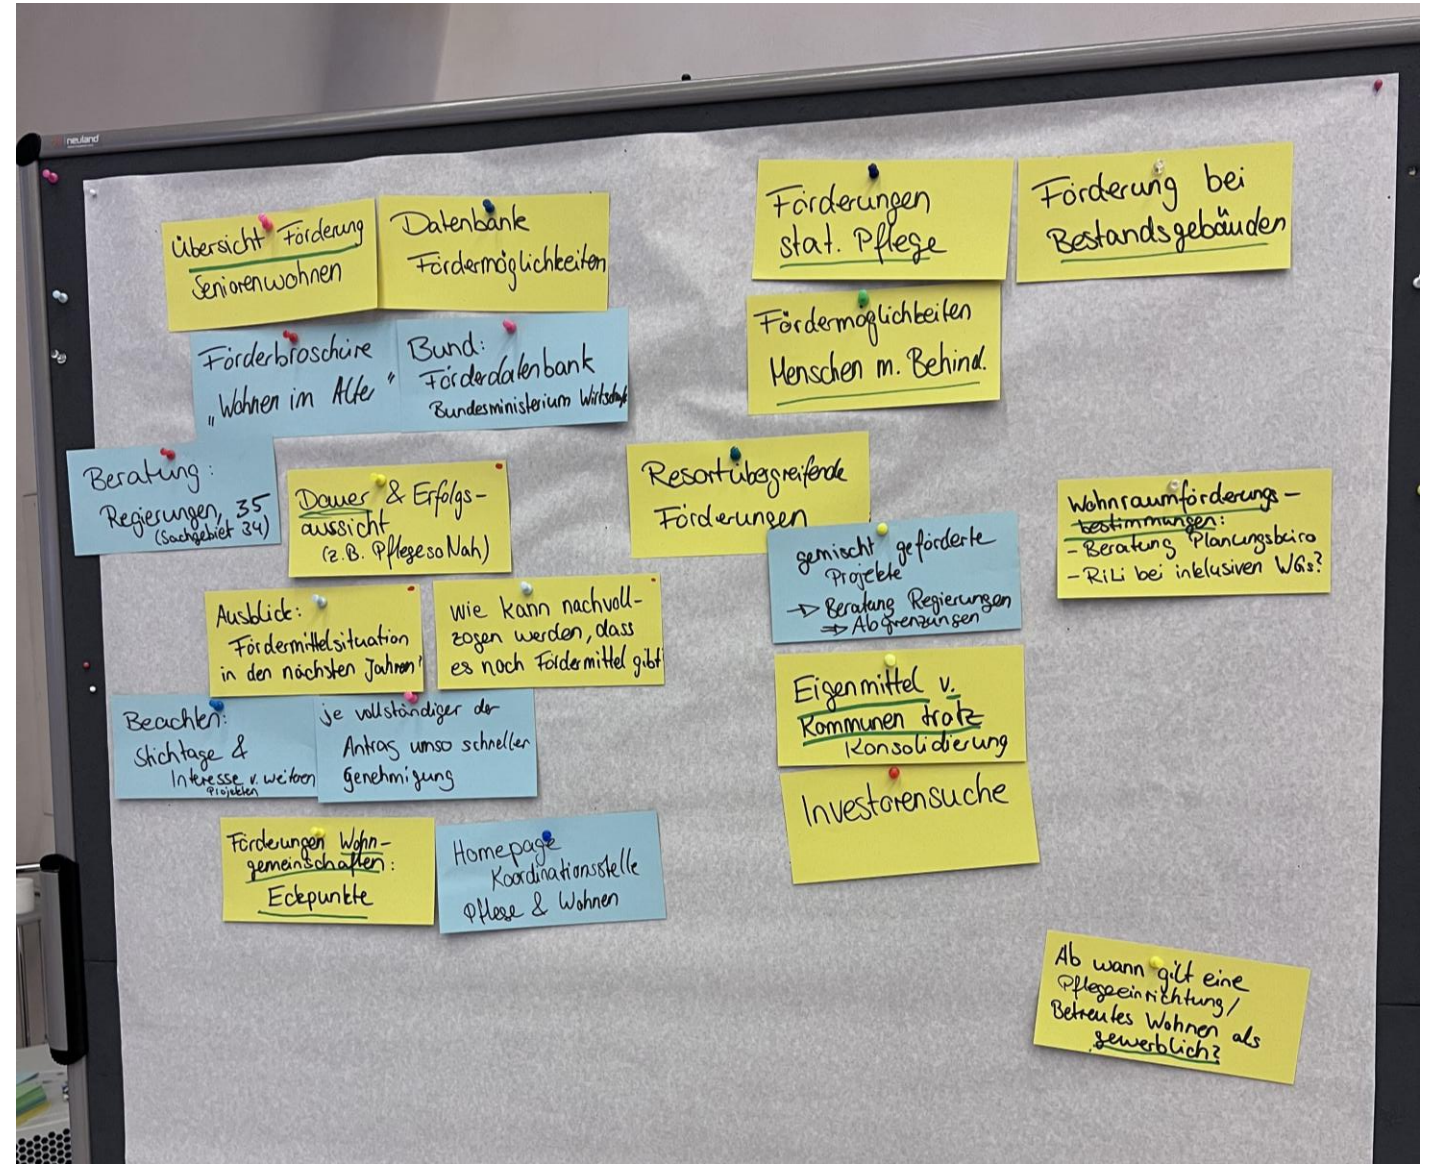 neuland
Übersicht Förderung
Seniorenwohnen
Datenbank
Fördermöglichkeiten
Förderbroschüre
„Wohnen im Alter"
Bund:
Förderdatenbank
Bundesministerium Wirtschaft
Beratung:
Regierungen, 35
(Sachgebiet 34)
Dauer & Erfolgs-
aussicht
(z.B. PflegesoNah)
Ausblick:
Fördermittelsituation
in den nächsten Jahren?
wie kann nachvoll-
zogen werden, dass
es noch Fördermittel gibt
Beachten:
Stichtage &
Interesse v. weiteren
Projekten
je vollständiger der
Antrag umso schneller
Genehmigung
Förderungen Wohn-
gemeinschaften:
Eckpunkte
Homepage
Koordinationsstelle
Pflege & Wohnen
Förderungen
stat. Pflege
Förderung bei
Bestandsgebäuden
Fördermöglichkeiten
Menschen m. Behind.
Resortübergreifende
Förderungen
gemischt geförderte
Projekte
→ Beratung Regierungen
⇒ Abgrenzungen
Eigenmittel v.
Kommunen trotz
Konsolidierung
Investorensuche
Wohnraumförderungs-
bestimmungen:
- Beratung Planungsbüro
- RiLi bei inklusiven WGs?
Ab wann gilt eine
Pflegeeinrichtung/
Betreutes Wohnen als
gewerblich?